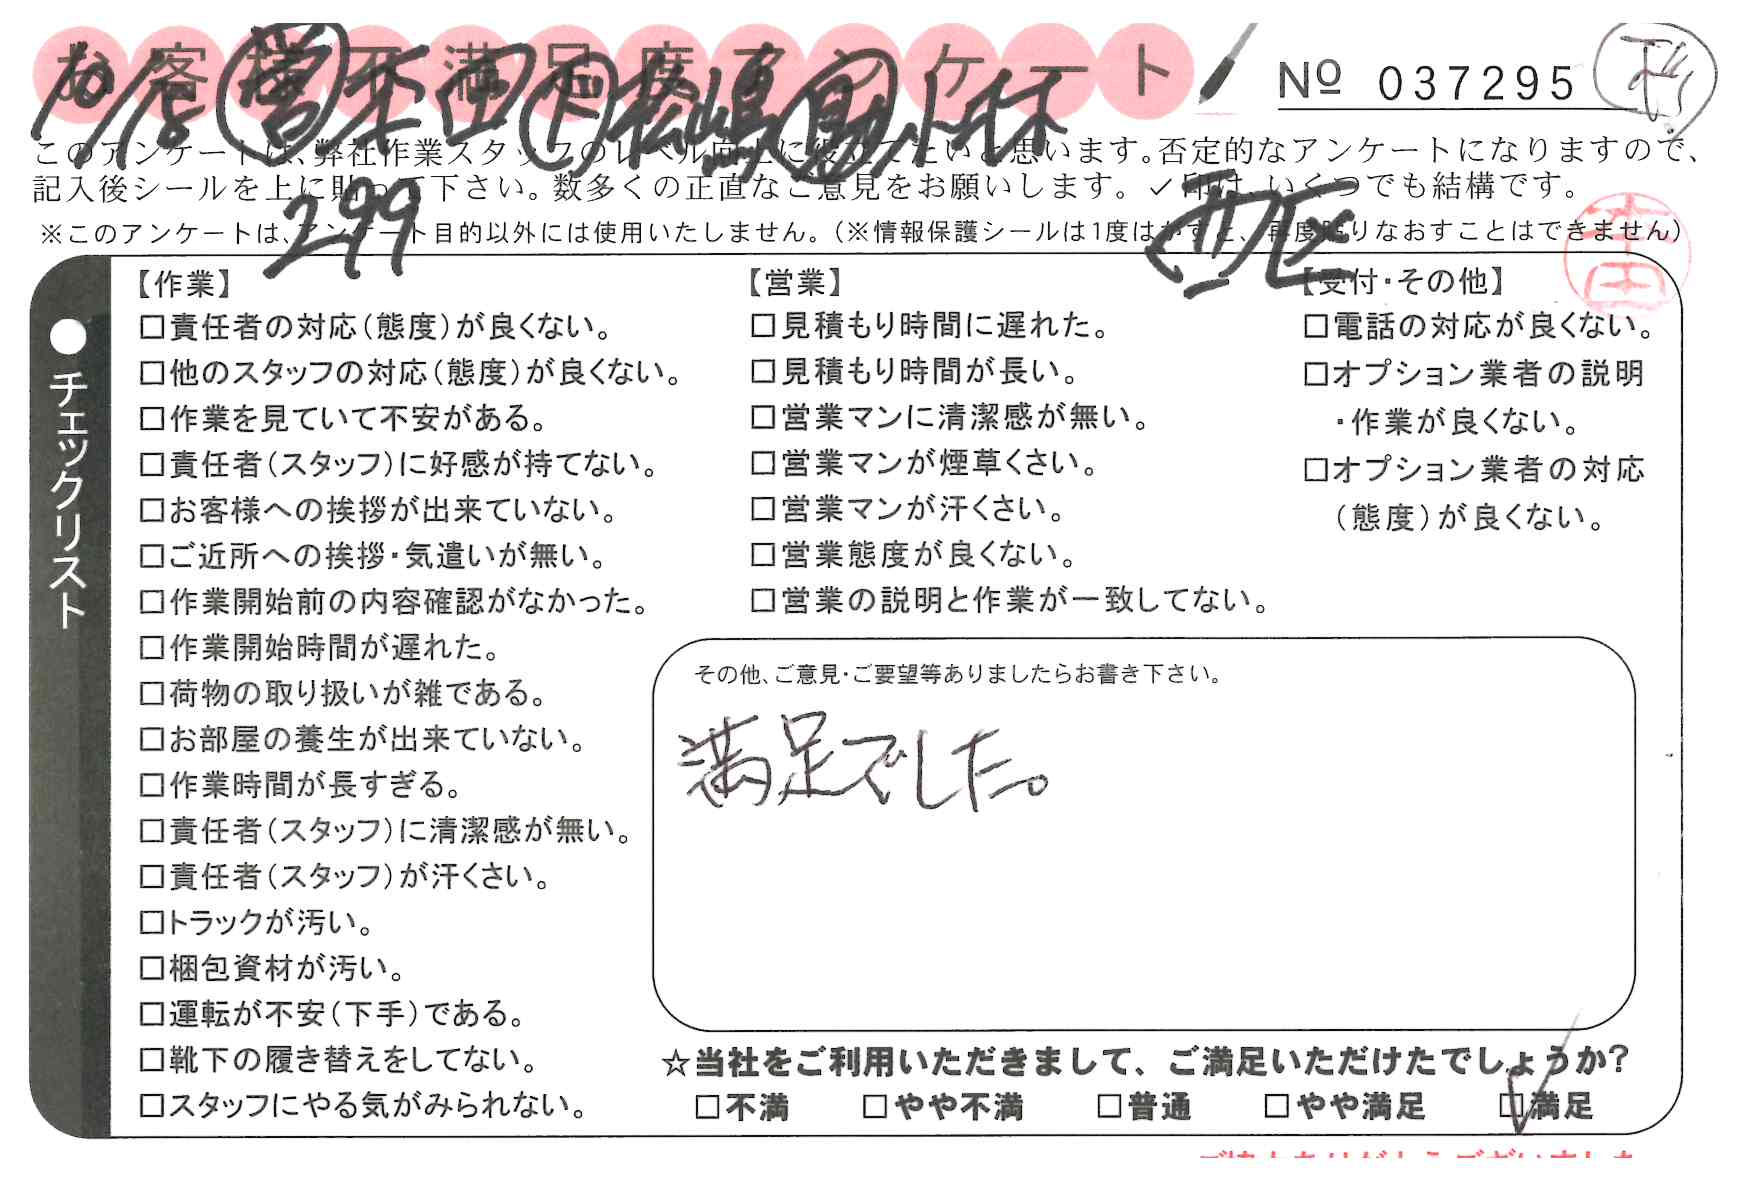 お客様不満足度アンケート
№ 037295
10/18 営 下 松嶋
このアンケートは、弊社作業スタッフのレベル向上に役立てたいと思います。否定的なアンケートになりますので、
記入後シールを上に貼って下さい。数多くの正直なご意見をお願いします。✓印は、いくつでも結構です。
299 西区
※このアンケートは、アンケート目的以外には使用いたしません。(※情報保護シールは1度はがすと、再度貼りなおすことはできません)
●チェックリスト
【作業】
□責任者の対応(態度)が良くない。
□他のスタッフの対応(態度)が良くない。
□作業を見ていて不安がある。
□責任者(スタッフ)に好感が持てない。
□お客様への挨拶が出来ていない。
□ご近所への挨拶・気遣いが無い。
□作業開始前の内容確認がなかった。
□作業開始時間が遅れた。
□荷物の取り扱いが雑である。
□お部屋の養生が出来ていない。
□作業時間が長すぎる。
□責任者(スタッフ)に清潔感が無い。
□責任者(スタッフ)が汗くさい。
□トラックが汚い。
□梱包資材が汚い。
□運転が不安(下手)である。
□靴下の履き替えをしてない。
□スタッフにやる気がみられない。
【営業】
□見積もり時間に遅れた。
□見積もり時間が長い。
□営業マンに清潔感が無い。
□営業マンが煙草くさい。
□営業マンが汗くさい。
□営業態度が良くない。
□営業の説明と作業が一致してない。
【受付・その他】
□電話の対応が良くない。
□オプション業者の説明
・作業が良くない。
□オプション業者の対応
(態度)が良くない。
その他、ご意見・ご要望等ありましたらお書き下さい。
満足でした。
☆当社をご利用いただきまして、ご満足いただけたでしょうか?
□不満 □やや不満 □普通 □やや満足 ☑満足